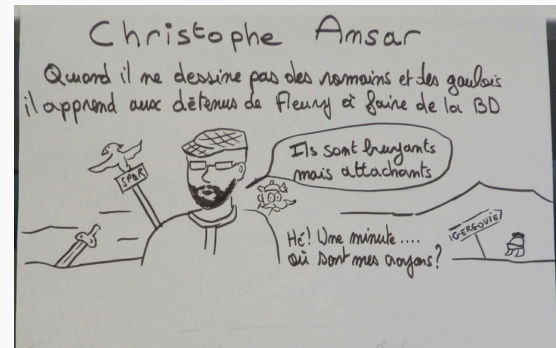 Christophe Ansar
Quand il ne dessine pas des romains et des gaulois
il apprend aux détenus de Fleury à faire de la BD
Ils sont bruyants
mais attachants
SPQR
Hé! Une minute....
où sont mes crayons?
GERGOVIE